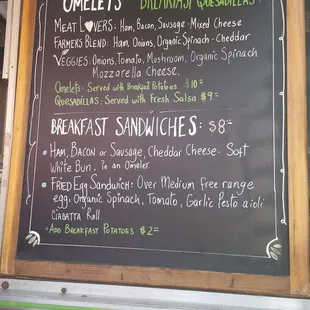 OMELETS BREAKFAST QUESADILLAS
MEAT LOVERS: Ham, Bacon, Sausage - Mixed Cheese
FARMERS BLEND: Ham, Onions, Organic Spinach - Cheddar
VEGGIES: Onions, Tomato, Mushroom, Organic Spinach
Mozzarella Cheese.
Omelets: Served with Breakfast Potatoes $10
Quesadillas: Served with Fresh Salsa $9
BREAKFAST SANDWICHES: $8
Ham, Bacon or Sausage, Cheddar Cheese - Soft
White Bun, in an Omelet.
Fried Egg Sandwich: Over Medium free range
egg, Organic Spinach, Tomato, Garlic Pesto aioli.
Ciabatta Roll.
Add Breakfast Potatoes $2